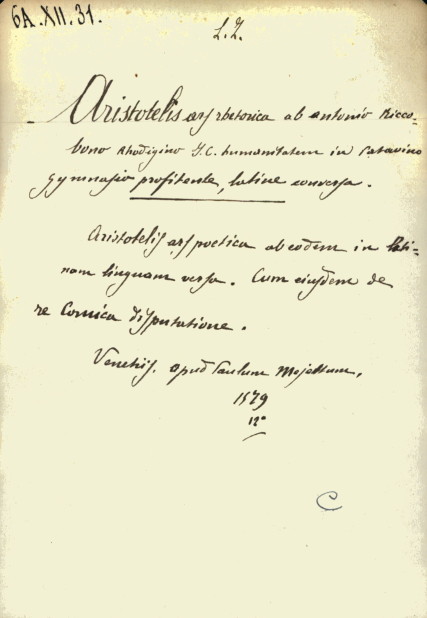 6A.XII.31.
L.Z.
Aristotelis ars rhetorica ab antonio Ricco-
bono Rhodigino J.C. humanitatem in Patavino
gymnasio profitente, latine conversa.
Aristotelis ars poetica ab eodem in lati-
nam linguam versa. Cum ejusdem de
re Comica disputatione.
Venetiis. apud Paulum Mejettum.
1579
12°
C